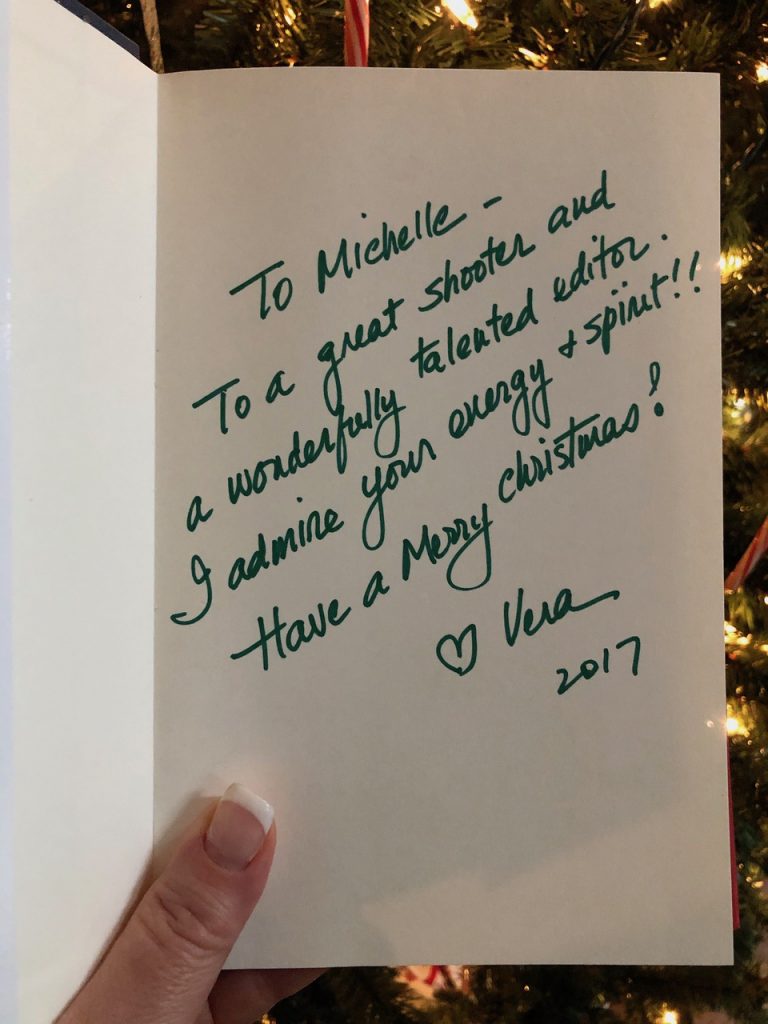 To Michelle -
To a great shooter and
a wonderfully talented editor.
I admire your energy + spirit!!
Have a Merry Christmas!
♡ Vera
2017